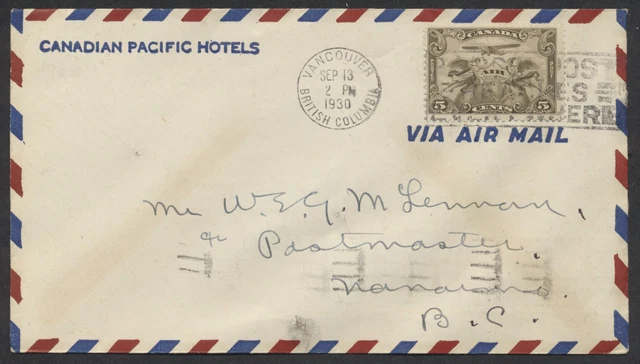 CANADIAN PACIFIC HOTELS
VANCOUVER
SEP 13
2 PM
1930
BRITISH COLUMBIA
CANADA
AIR
5 CENTS 5
OST
ES
ERE
VIA AIR MAIL
Mr W.E.G. McLennan,
c/o Postmaster,
Nanaimo
B.C.